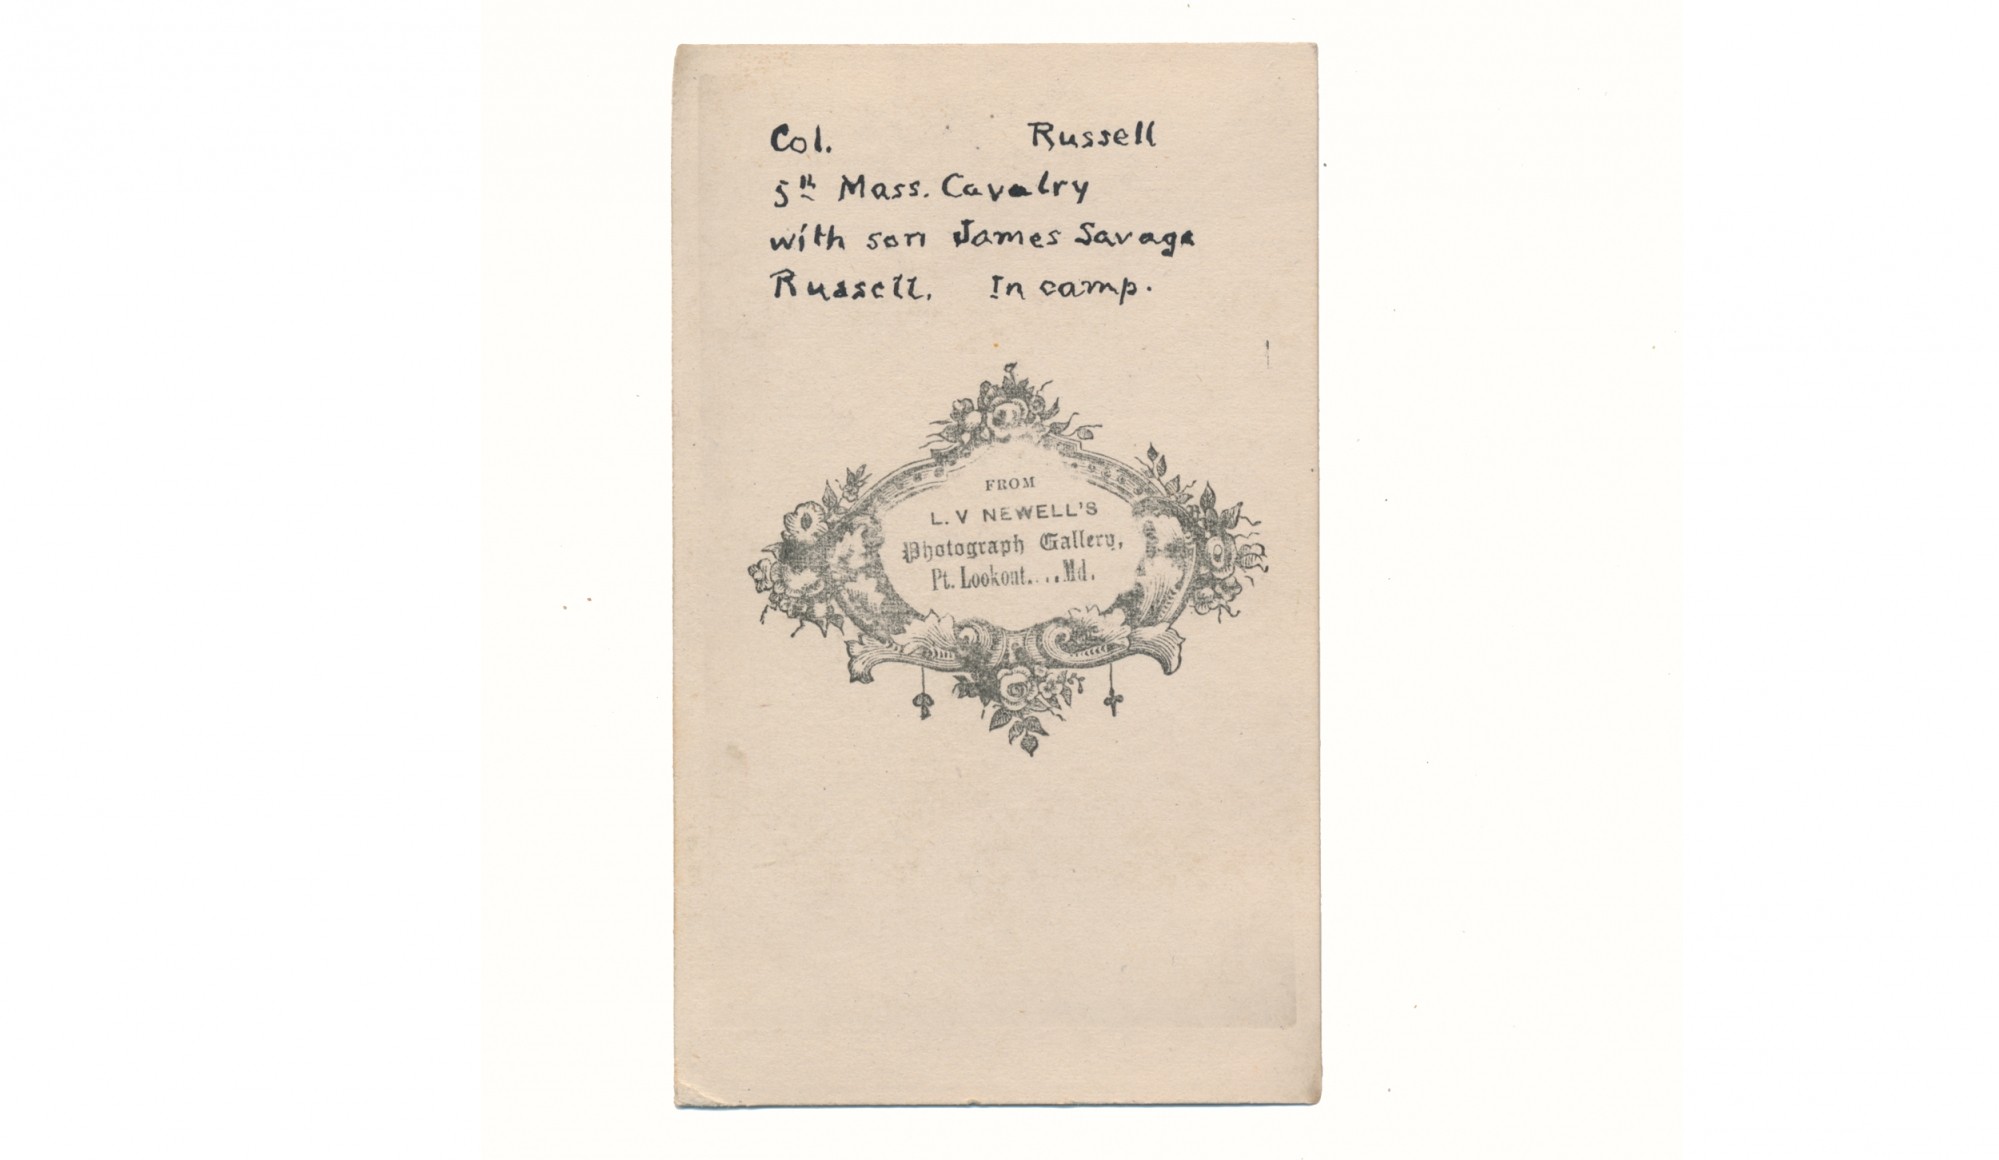 Col. Russell
5th Mass. Cavalry
with son James Savage
Russell. In camp.
FROM
L. V NEWELL'S
Photograph Gallery,
Pt. Lookout....Md.